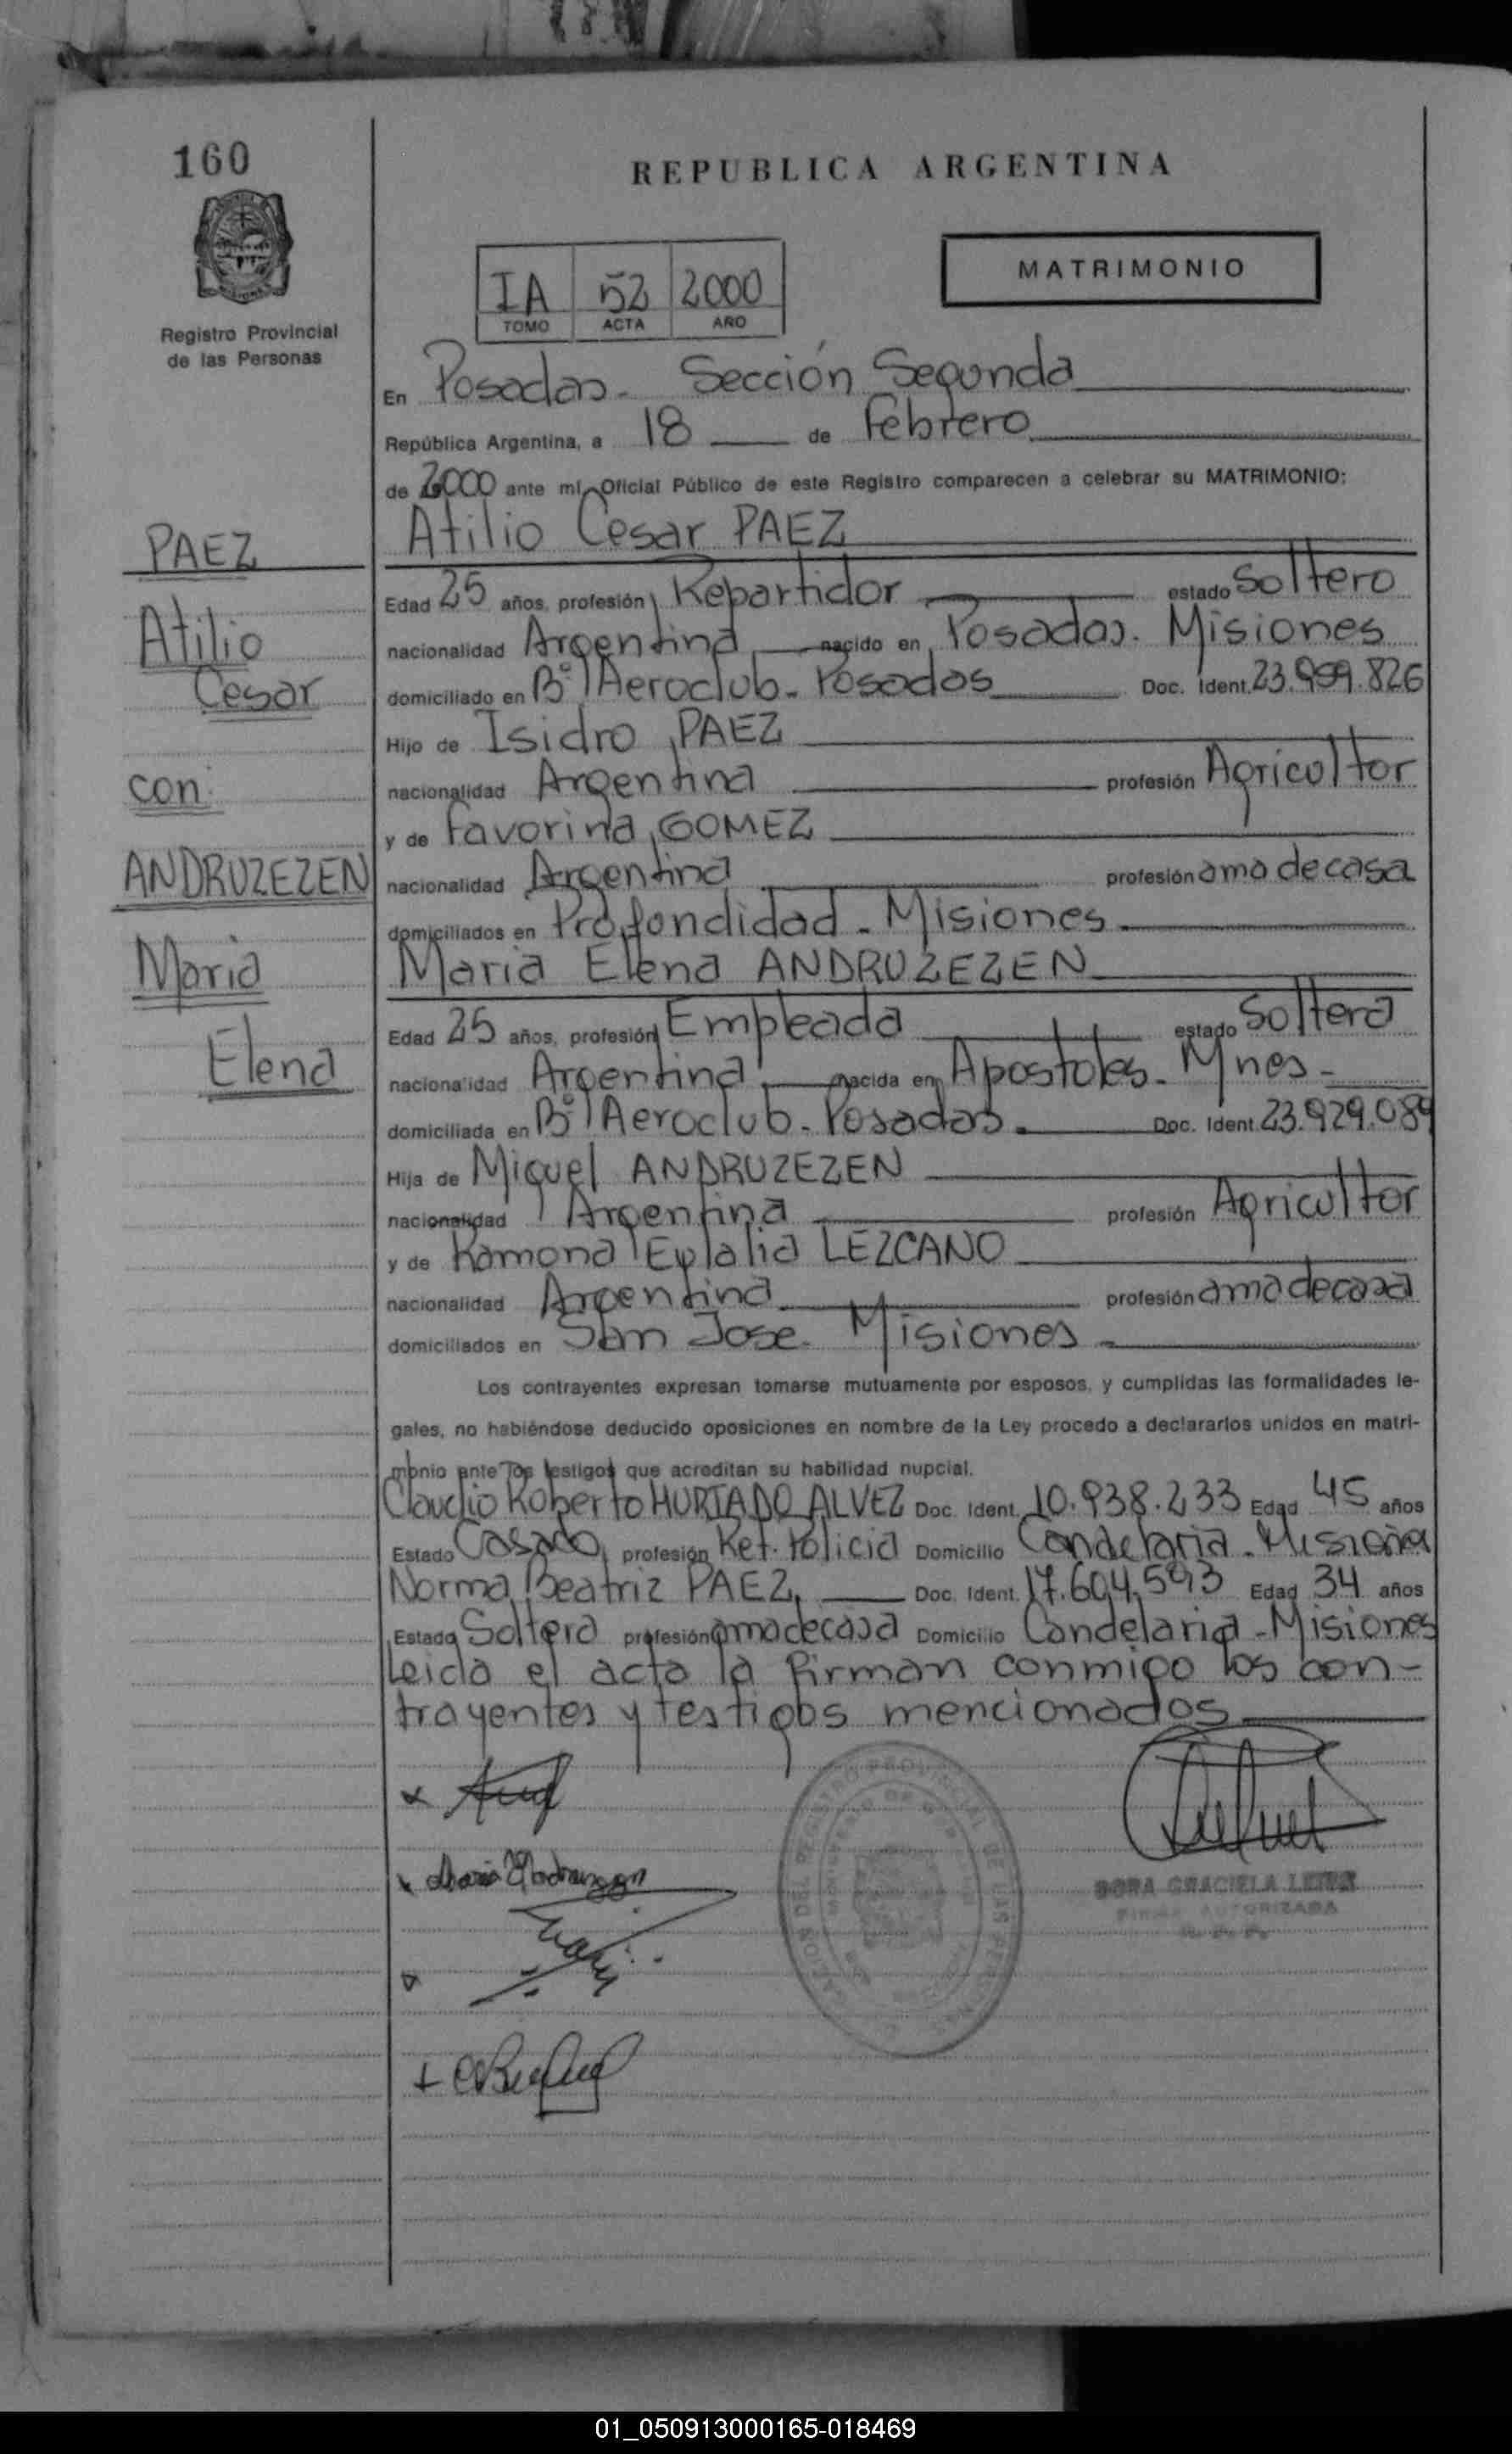 160
REPUBLICA ARGENTINA
MATRIMONIO
IA 52 2000
TOMO ACTA AÑO
Registro Provincial
de las Personas
En Posadas - Sección Segunda
República Argentina, a 18 de Febrero
de 2000 ante mí, Oficial Público de este Registro comparecen a celebrar su MATRIMONIO:
PAEZ
Atilio
Cesar
con
ANDRUZEZEN
Maria
Elena
Atilio Cesar PAEZ
Edad 25 años, profesión Repartidor estado Soltero
nacionalidad Argentina nacido en Posadas. Misiones
domiciliado en Bº Aeroclub - Posadas Doc. Ident. 23.999.826
Hijo de Isidro PAEZ
nacionalidad Argentina profesión Agricultor
y de Favorina GOMEZ
nacionalidad Argentina profesión ama de casa
domiciliados en Profundidad - Misiones
Maria Elena ANDRUZEZEN
Edad 25 años, profesión Empleada estado Soltera
nacionalidad Argentina nacida en Apostoles - Mnes -
domiciliada en Bº Aeroclub - Posadas. Doc. Ident. 23.929.089
Hija de Miguel ANDRUZEZEN
nacionalidad Argentina profesión Agricultor
y de Ramona Eulalia LEZCANO
nacionalidad Argentina profesión ama de casa
domiciliados en San Jose - Misiones
Los contrayentes expresan tomarse mutuamente por esposos, y cumplidas las formalidades le-
gales, no habiéndose deducido oposiciones en nombre de la Ley procedo a declararlos unidos en matri-
monio ante los testigos que acreditan su habilidad nupcial.
Claudio Roberto HURTADO ALVEZ Doc. Ident. 10.938.233 Edad 45 años
Estado Casado profesión Ret. Policia Domicilio Candelaria - Misiones
Norma Beatriz PAEZ Doc. Ident. 17.604.593 Edad 34 años
Estado Soltera profesión ama de casa Domicilio Candelaria - Misiones
Leida el acta la firman conmigo los con-
trayentes y testigos mencionados
GRACIELA
FIRMA AUTORIZADA
01_050913000165-018469